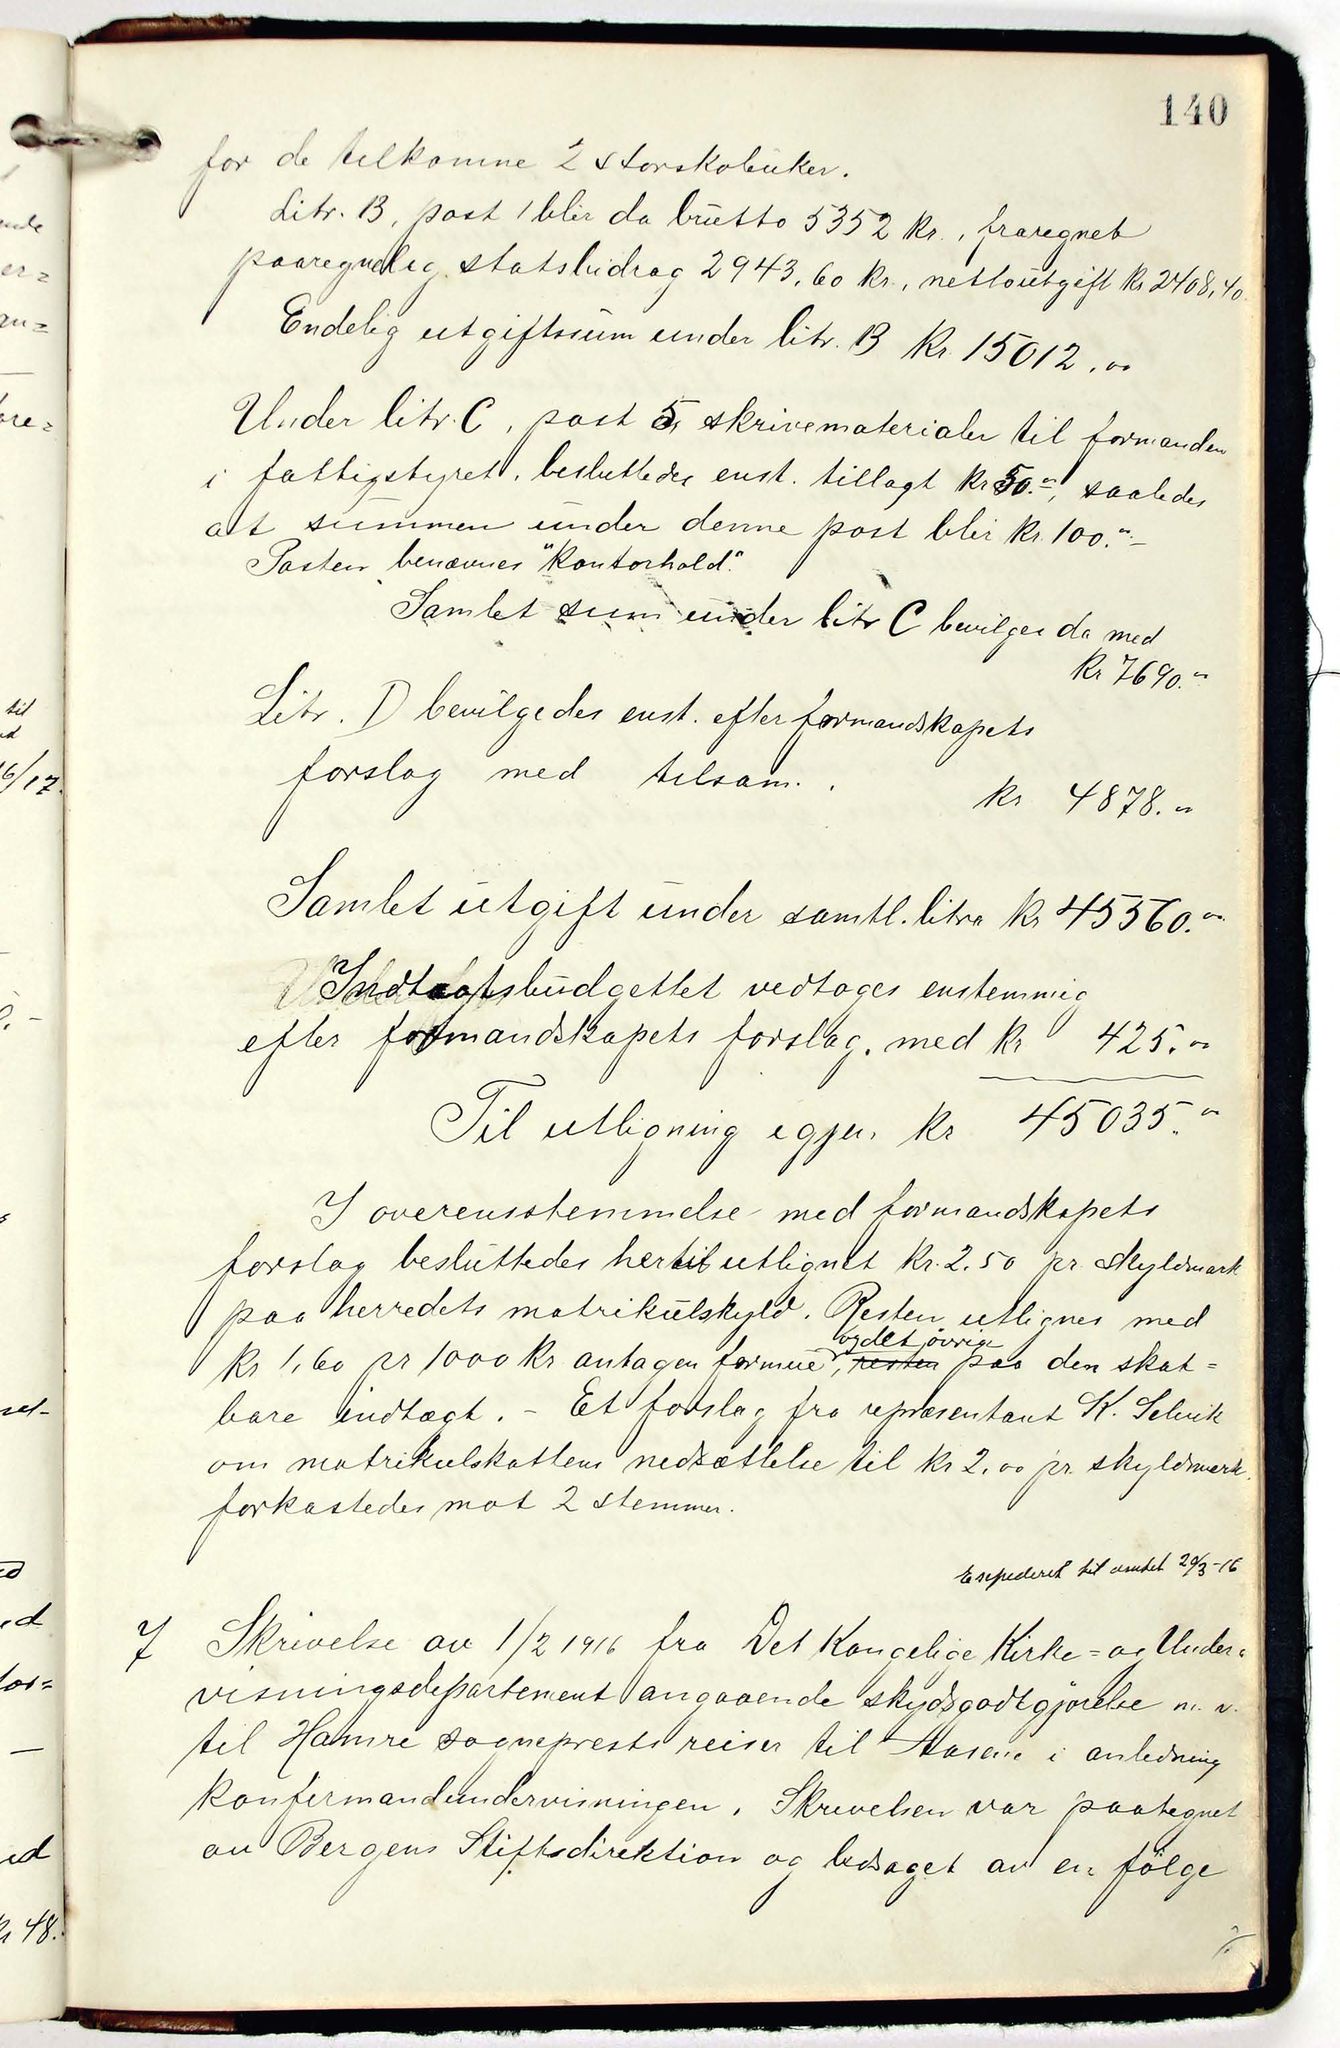 140
for de tilkomne 2 storskoleuker.
Litr. B, post 1 blir da brutto 5352 kr., fraregnet
paaregnelig statsbidrag 2943,60 kr., nettoutgift kr 2408,40.
Endelig utgiftssum under litr. B kr. 15012.00
Under litr. C, post 5, skrivematerialer til formanden
i fattigstyret, besluttedes enst. tillagt kr 50.-, saaledes
at summen under denne post blir kr. 100.-
Posten benævnes "kontorhold".
Samlet sum under litr C bevilges da med
kr 7690.-
Litr. D bevilgedes enst. efter formandskapets
forslag med tilsam. . kr 4878.-
Samlet utgift under samtl. litra kr 45560.-
Indtægtsbudgettet vedtoges enstemmig
efter formandskapets forslag, med kr 425.-
Til utligning igjen kr 45035.-
I overensstemmelse med formandskapets
forslag besluttedes hertil utlignet kr. 2.50 pr. skyldmark
paa herredets matrikulskyld. Resten utlignes med
og det övrige
kr 1,60 pr 1000 kr antagen formue, resten paa den skat=
bare indtægt. - Et forslag fra repræsentant K. Selvik
om matrikulskattens nedsættelse til kr 2,00 pr. skyldmark
forkastedes mot 2 stemmer.
Expederet til amtet 20/3-16
7 Skrivelse av 1/2 1916 fra Det Kongelige Kirke= og Under=
visningsdepartement angaaende skydsgodtgjörelse m. v.
til Hamre sogneprests reiser til Aasene i anledning
konfirmandundervisningen. Skrivelsen var paategnet
av Bergens Stiftsdirektion og ledsaget av en fölge
ende
er=
an=
ore=
til
16/17.
ed
kr 48.